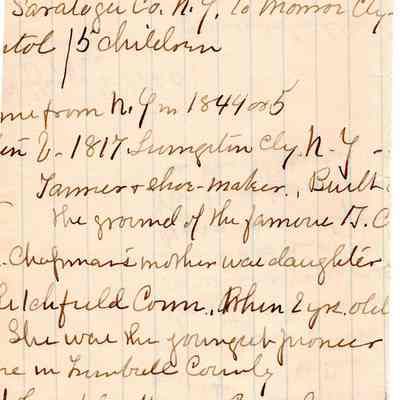 Saratoga Co. N. Y. to Monroe Cty.
5 children
me from N. Y in 1844 or 5
in V- 1817. Livingston Cty. N. Y -
Tanner & shoe-maker. Built
the ground of the famous D. C
. Chapman's mother was daughter
Litchfield Conn., When 2 yrs. old
She was the youngest pioneer
re in Trumbull County